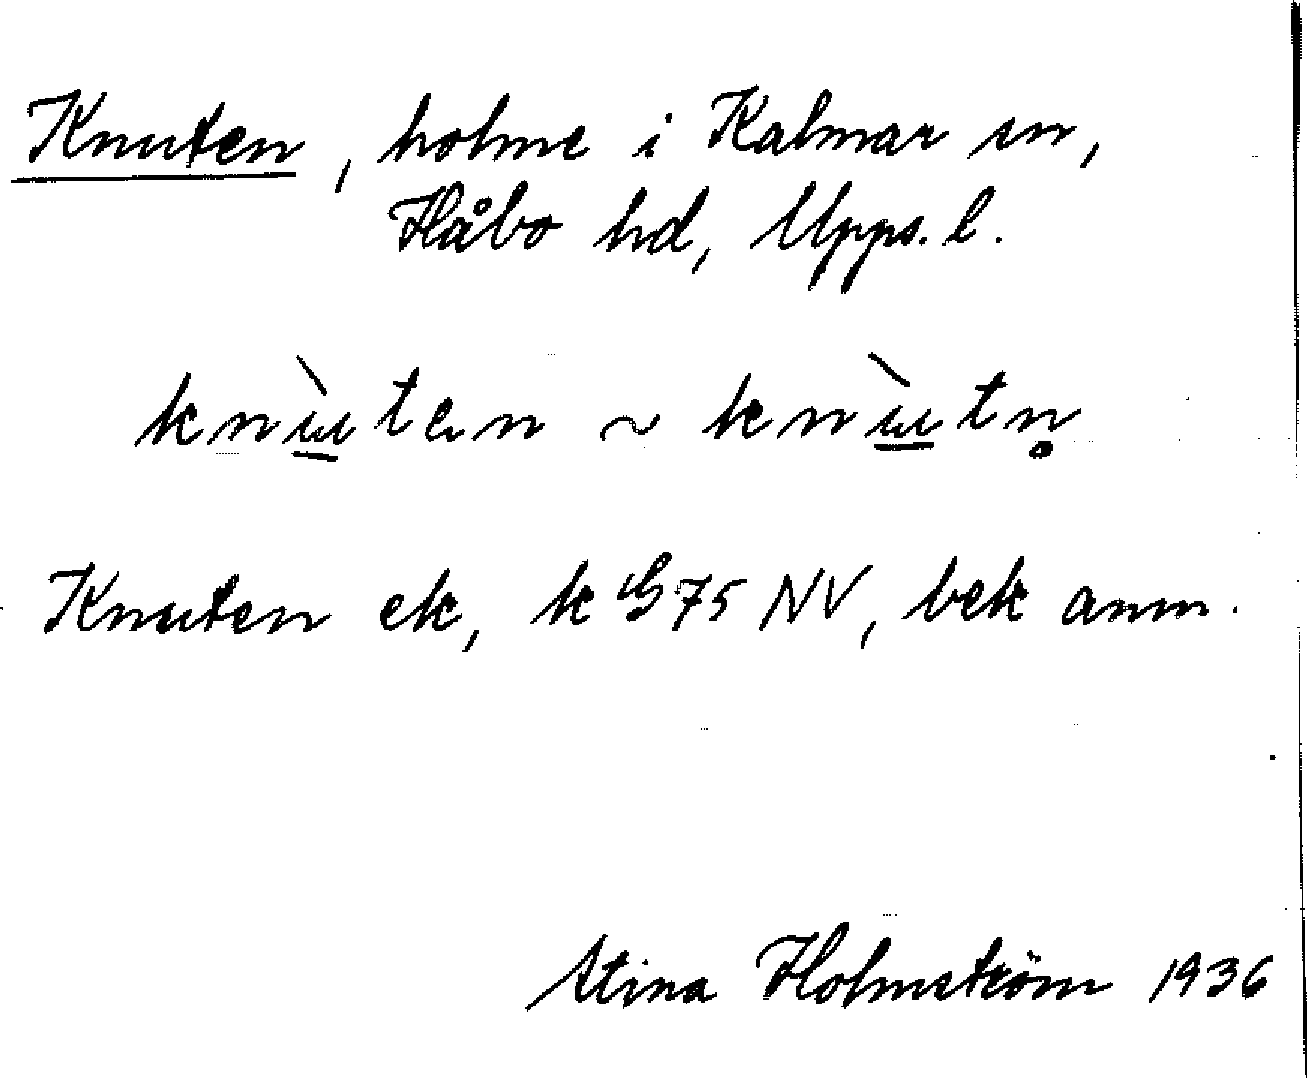 Knuten, holme i Kalmar sn,
Håbo hd, Upps. l.
knɯ̲̀ten ~ knɯ̲̀tn̥
Knuten ek, k G75 NV, bek anm.
Stina Holmström 1936